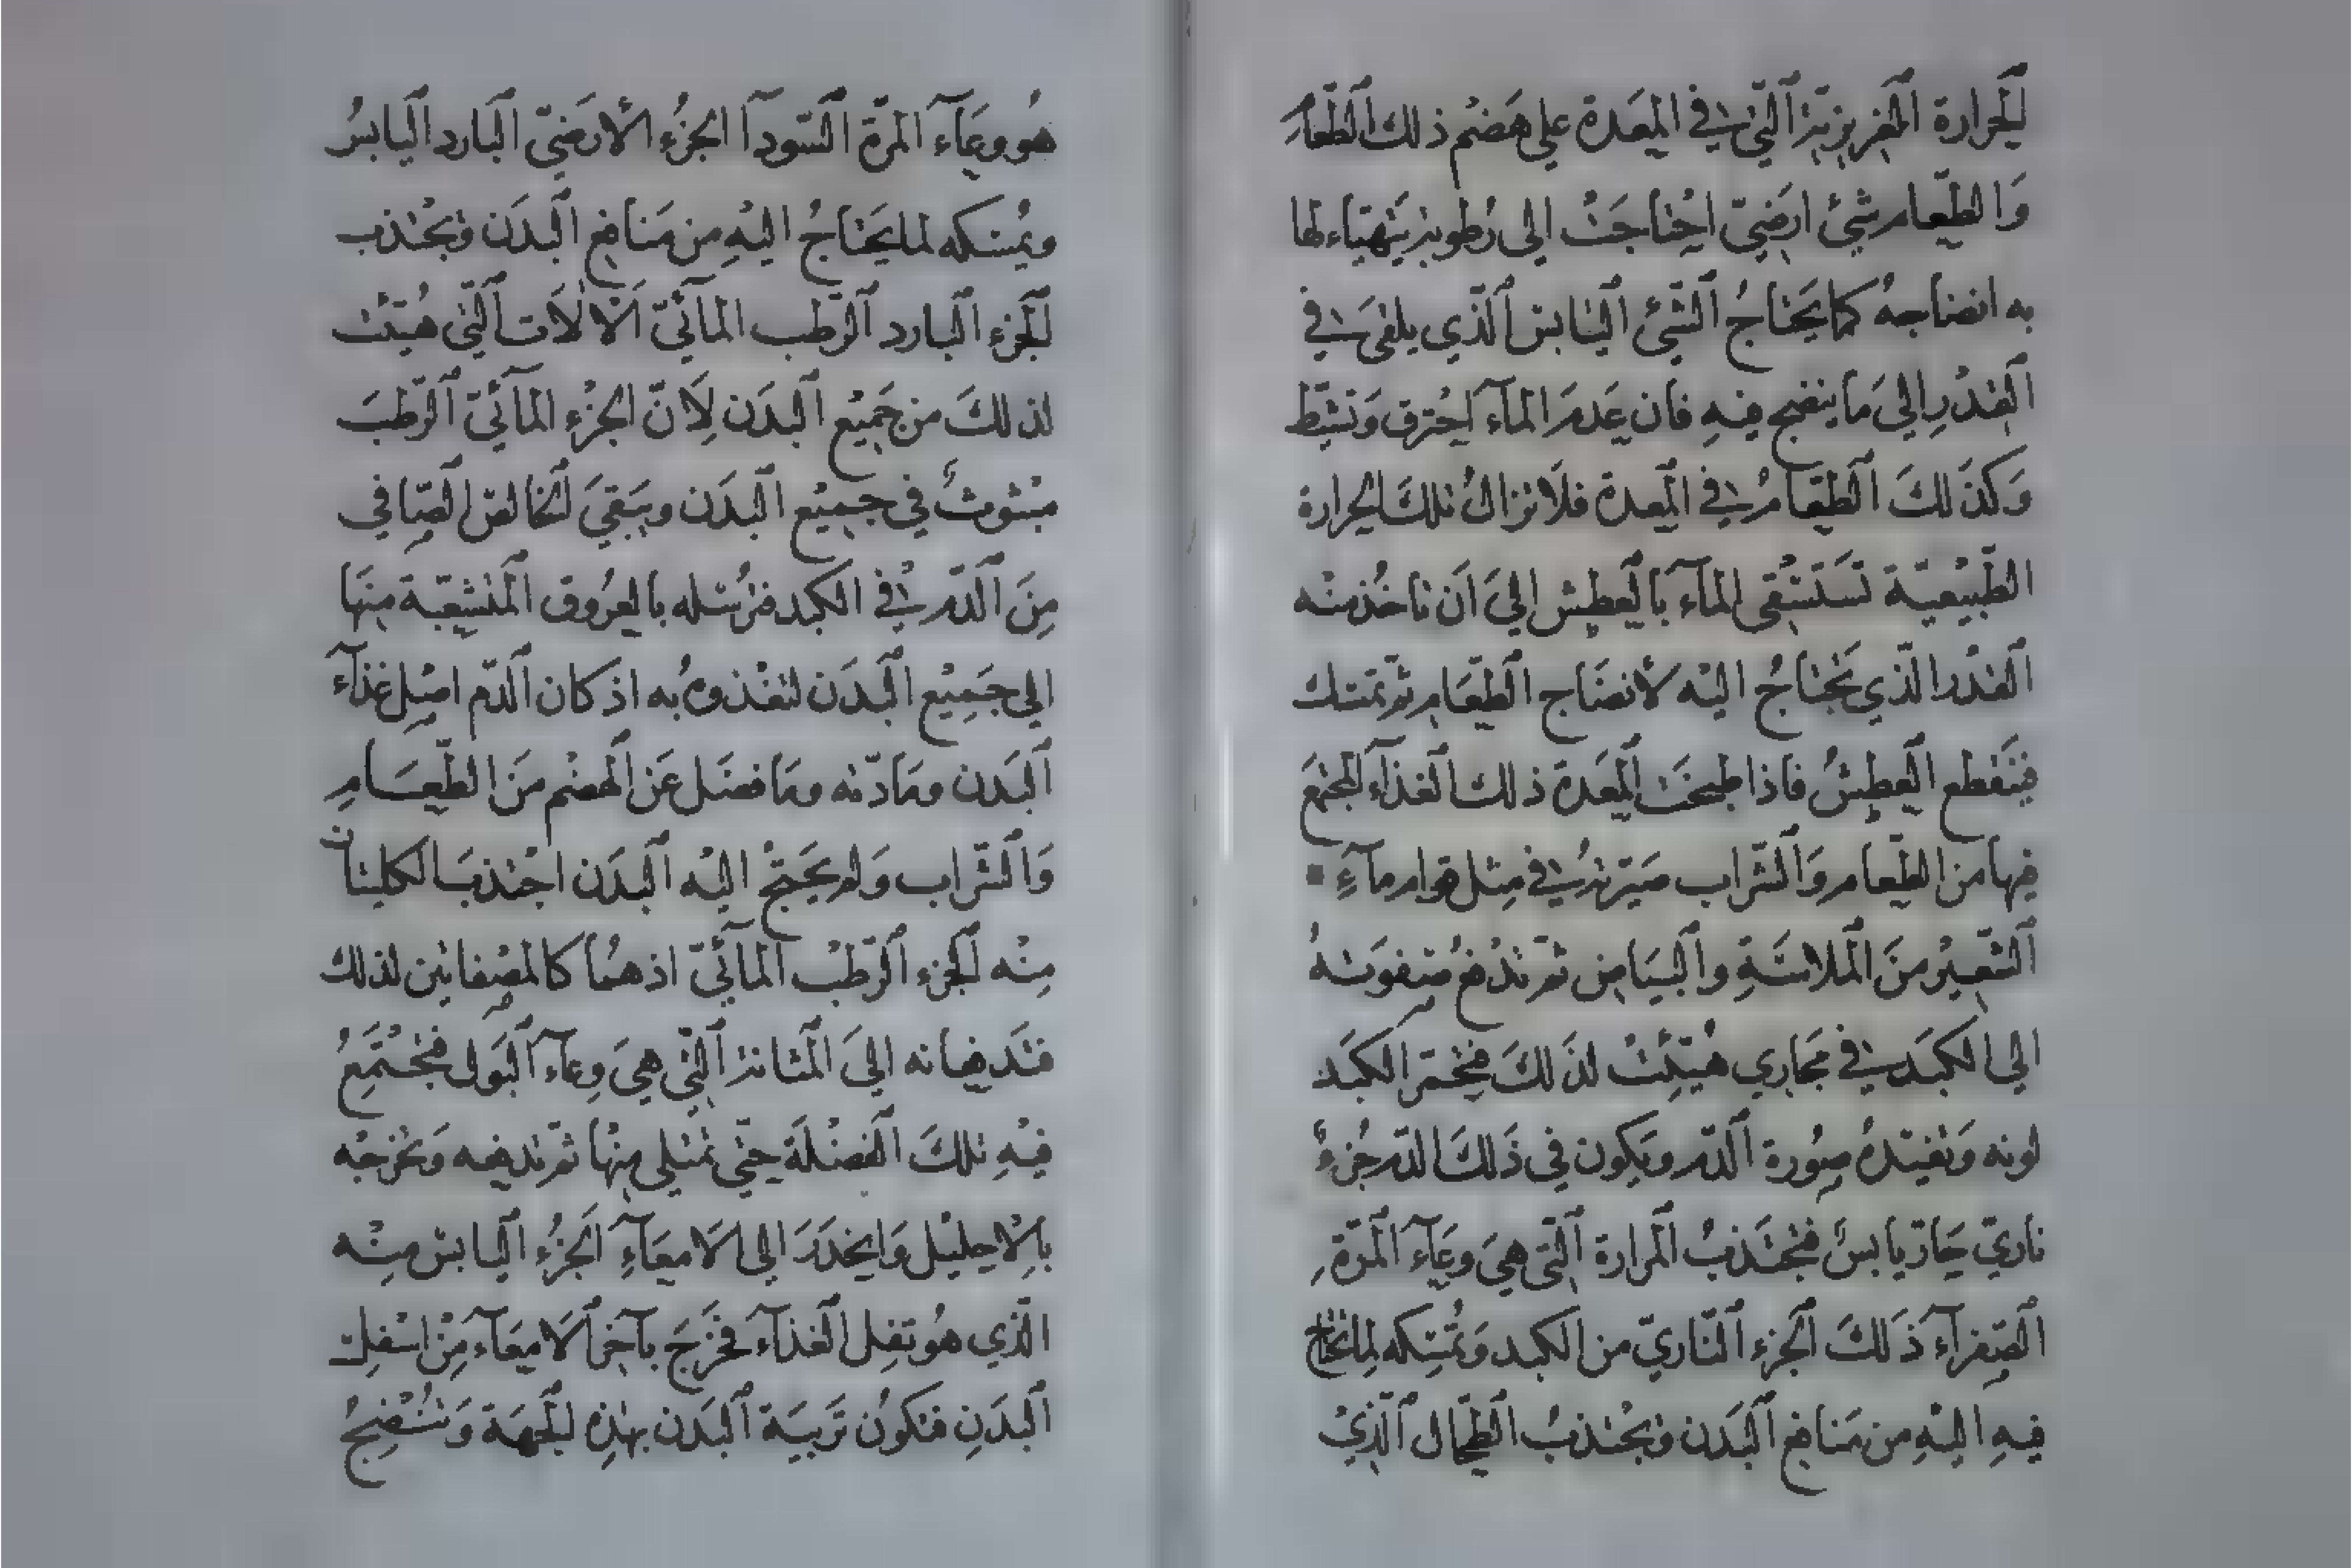 الحرارة الغريزية التي في المعدة على هضم ذلك الطعام
وَالطّعام شيْ ارَضِيّ احْتاجَتْ الى رُطوبة يَتهيّاء لها
به انضاجهُ كما يَحْتاجُ الشّيْ اليَابس الّذي يلقىَ في
القدْرِ الىَ مَا ينضج فيهِ فان عَدمَ المآء احْترق وَتشيّط
وَكذَلكَ الطّعَامُ في المعدة فلَا تزالُ تلكَ الحرارة
الطّبيْعيّة تَستَسْقى المآء بالعطش الىَ اَن تاخُذ منْه
القدْر الّذي تحْتاجُ اليْه لأنضَاج الطّعَام ثمّ تمَسك
فيَنقطع العطِشُ فاذا طبخَت المعَدة ذلك الغذآء المجتمعَ
فيها من الطّعام وَالشّراب صَيّرتهُ في مِثل قوام مآءِ
الشّعيْر منَ المَلاسَةِ والبيَاض ثمّ تدْفعُ صَفوَتهُ
الي الكبَد في مَجاري هُيّئِتْ لذَلكَ فيحْمرّ الكبَد
لونه وَتفيْدهُ صُورة الدّم ويَكون في ذَلكَ الدّم جُزءٌ
ناريّ حَارّ يابسٌ فتجْتَذبُ المرارة الّتى هيَ وعَآء المرّة
الصّفرآء ذَلكَ الجزء النّاريّ من الكبد وَتُمْسِكه لِما تحْتاج
فيهِ اليْهِ من مَنافع البَدن وَيجْتذبُ الطّحَال الّذيْ
هُو وعَآء المرّة السّودآ الجزُء الأرَضيّ البَارد اليَابسُ
ويُمْسكه لما يَحْتاجُ اليْهِ من مَنافع البدَن وَيَجْتذب
الجزء البارد الرّطب المآئيّ الالَات الّتي هُيّئت
لذلكَ من جَميْع البدَن لِاَنّ الجزْء المآئيّ الرّطبَ
مبْثوثٌ في جميْع البدَن ويَبقيَ الخالص الصّافي
مِنَ الدّم في الكبد فترُسْله بالعرُوق المنْشعِبة مِنهَا
الى جَميْع البدَن لتغْذوهُ به اذ كان الدّم اصْل غذآء
البَدن ومَادّته ومَا فضَل عَن الهضْم مَن الطّعَامِ
وَالشّراب وَلم يَحتجْ اليْه البدَن اجْتذبَ الكليتان
مِنْه الجزء الرّطبْ المآئيّ اذ همُا كالمصْفاتين لذلك
فتَدفعانه الىَ المثانة الّتي هيَ وِعآء البَول فيَجْتَمعُ
فيْهِ تلكَ الفضْلَة حتّي تمْتلي منْهَا ثمّ تدفعه وَتخْرجْه
بالِاحليْل وَانحدَرَ الى الاَمعَآءِ الجزْء اليابس مِنْه
الّذي هُو ثفِل الغذآء فيَخرجَ بآخر الاَمعَآء مِنْ اسْفل
البدَنِ فتكوُن تَربيَة البَدن بهذِه الجهَة وَتنْضجُ